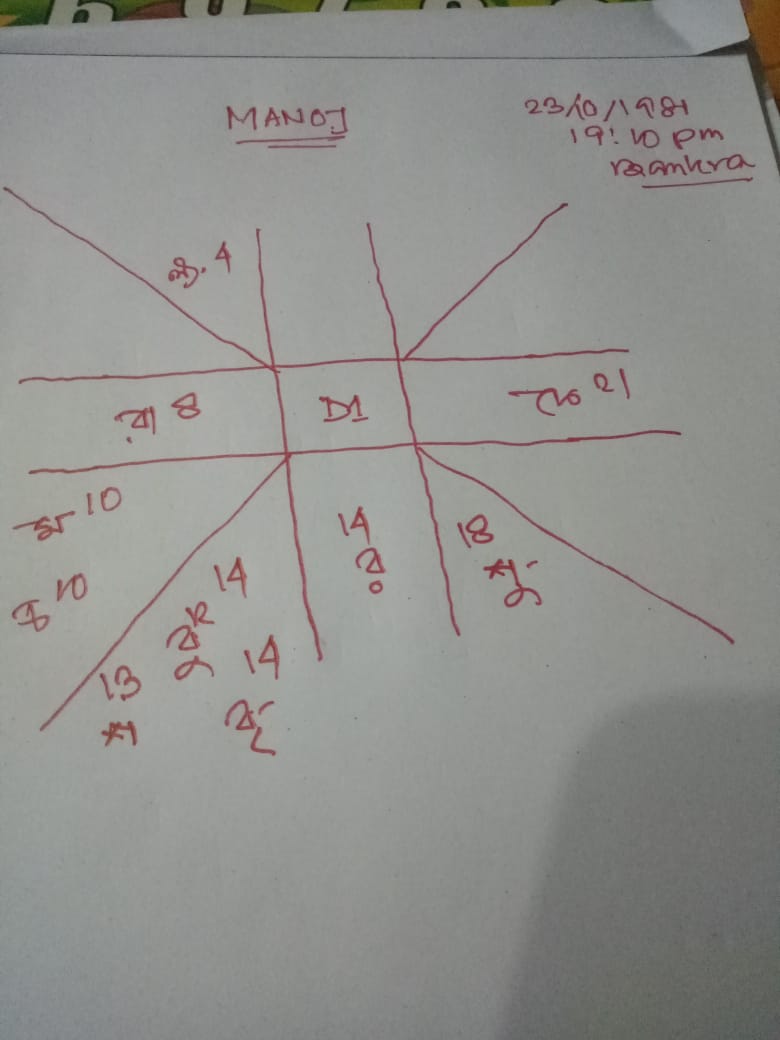 MANOJ
23/10/1981
19:10 pm
Bankra
ল. 4
রা 8
D1
কে 21
ম 10
চ 10
14
র
18
শু
14
বৃ
14
বু
13
শ